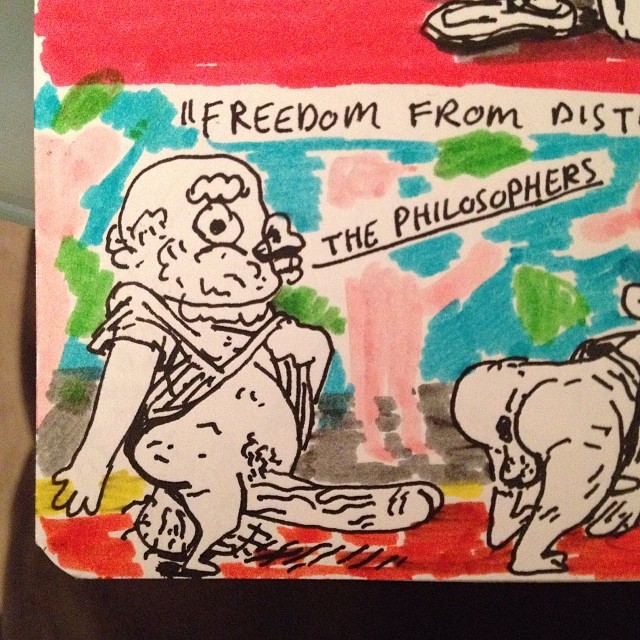 "FREEDOM FROM DIST
THE PHILOSOPHERS